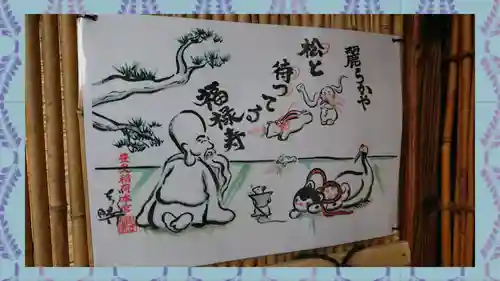 麗らかや
松と
待つてる
福禄寿